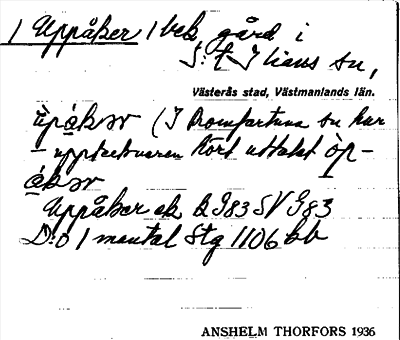 1 Uppåker 1 bek gård i
S:t Ilians sn,
Västerås stad, Västmanlands län.
ùpåkər (I Romfartuna sn har
upptecknaren hört uttalet òp-
åkər
Uppåker ek B G83 SV G83
D:o 1 mantal Stg 1106 bb
ANSHELM THORFORS 1936